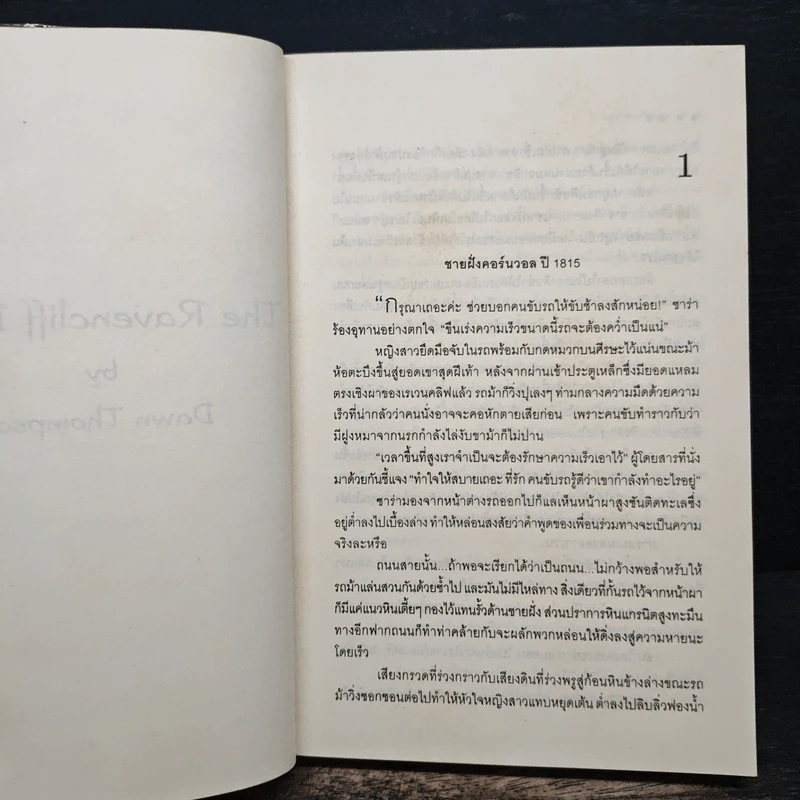 The Ravencliff
by
Dawn Thompso
1
ชายฝั่งคอร์นวอล ปี 1815
“กรุณาเถอะค่ะ ช่วยบอกคนขับรถให้ขับช้าลงสักหน่อย!” ซาร่า
ร้องอุทานอย่างตกใจ “ขืนเร่งความเร็วขนาดนี้รถจะต้องคว่ำเป็นแน่”
หญิงสาวยึดมือจับในรถพร้อมกับกดหมวกบนศีรษะไว้แน่นขณะม้า
ห้อตะบึงขึ้นสู่ยอดเขาสุดฝีเท้า หลังจากผ่านเข้าประตูเหล็กซึ่งมียอดแหลม
ตรงเชิงผาของเรเวนคลิฟแล้ว รถม้าก็วิ่งปุเลงๆ ท่ามกลางความมืดด้วยความ
เร็วที่น่ากลัวว่าคนนั่งอาจจะคอหักตายเสียก่อน เพราะคนขับทำราวกับว่า
มีฝูงหมาจากนรกกำลังไล่งับขาม้าก็ไม่ปาน
“เวลาขึ้นที่สูงเราจำเป็นจะต้องรักษาความเร็วเอาไว้” ผู้โดยสารที่นั่ง
มาด้วยกันชี้แจง “ทำใจให้สบายเถอะ ที่รัก คนขับรถรู้ดีว่าเขากำลังทำอะไรอยู่”
ซาร่ามองจากหน้าต่างรถออกไปก็แลเห็นหน้าผาสูงชันติดทะเลซึ่ง
อยู่ต่ำลงไปเบื้องล่าง ทำให้หล่อนสงสัยว่าคำพูดของเพื่อนร่วมทางจะเป็นความ
จริงละหรือ
ถนนสายนั้น...ถ้าพอจะเรียกได้ว่าเป็นถนน...ไม่กว้างพอสำหรับให้
รถม้าแล่นสวนกันด้วยซ้ำไป และมันไม่มีไหล่ทาง สิ่งเดียวที่กั้นรถไว้จากหน้าผา
ก็มีแค่แนวหินเตี้ยๆ กองไว้แทนรั้วด้านชายฝั่ง ส่วนปราการหินแกรนิตสูงทะมึน
ทางอีกฟากถนนก็ทำท่าคล้ายกับจะผลักพวกหล่อนให้ดิ่งลงสู่ความหายนะ
โดยเร็ว
เสียงกรวดที่ร่วงกราวกับเสียงดินที่ร่วงพรูสู่ก้อนหินข้างล่างขณะรถ
ม้าวิ่งซอกซอนต่อไปทำให้หัวใจหญิงสาวแทบหยุดเต้น ต่ำลงไปลิบลิ่วฟองน้ำ